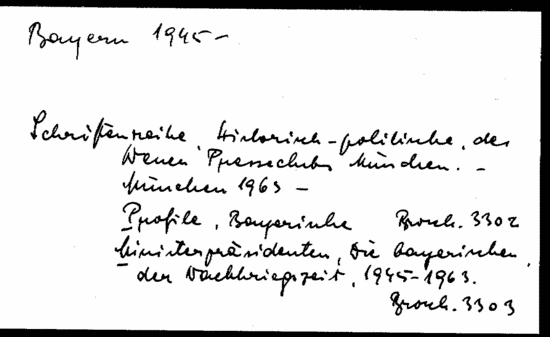 Bayern 1945-
Schriftenreihe, Historisch-politische, des
Neuen Presseclubs München. -
München 1963 -
Profile, Bayerische Brosch. 3302
Ministerpräsidenten, Die bayerischen,
der Nachkriegszeit, 1945-1963.
Brosch. 3303